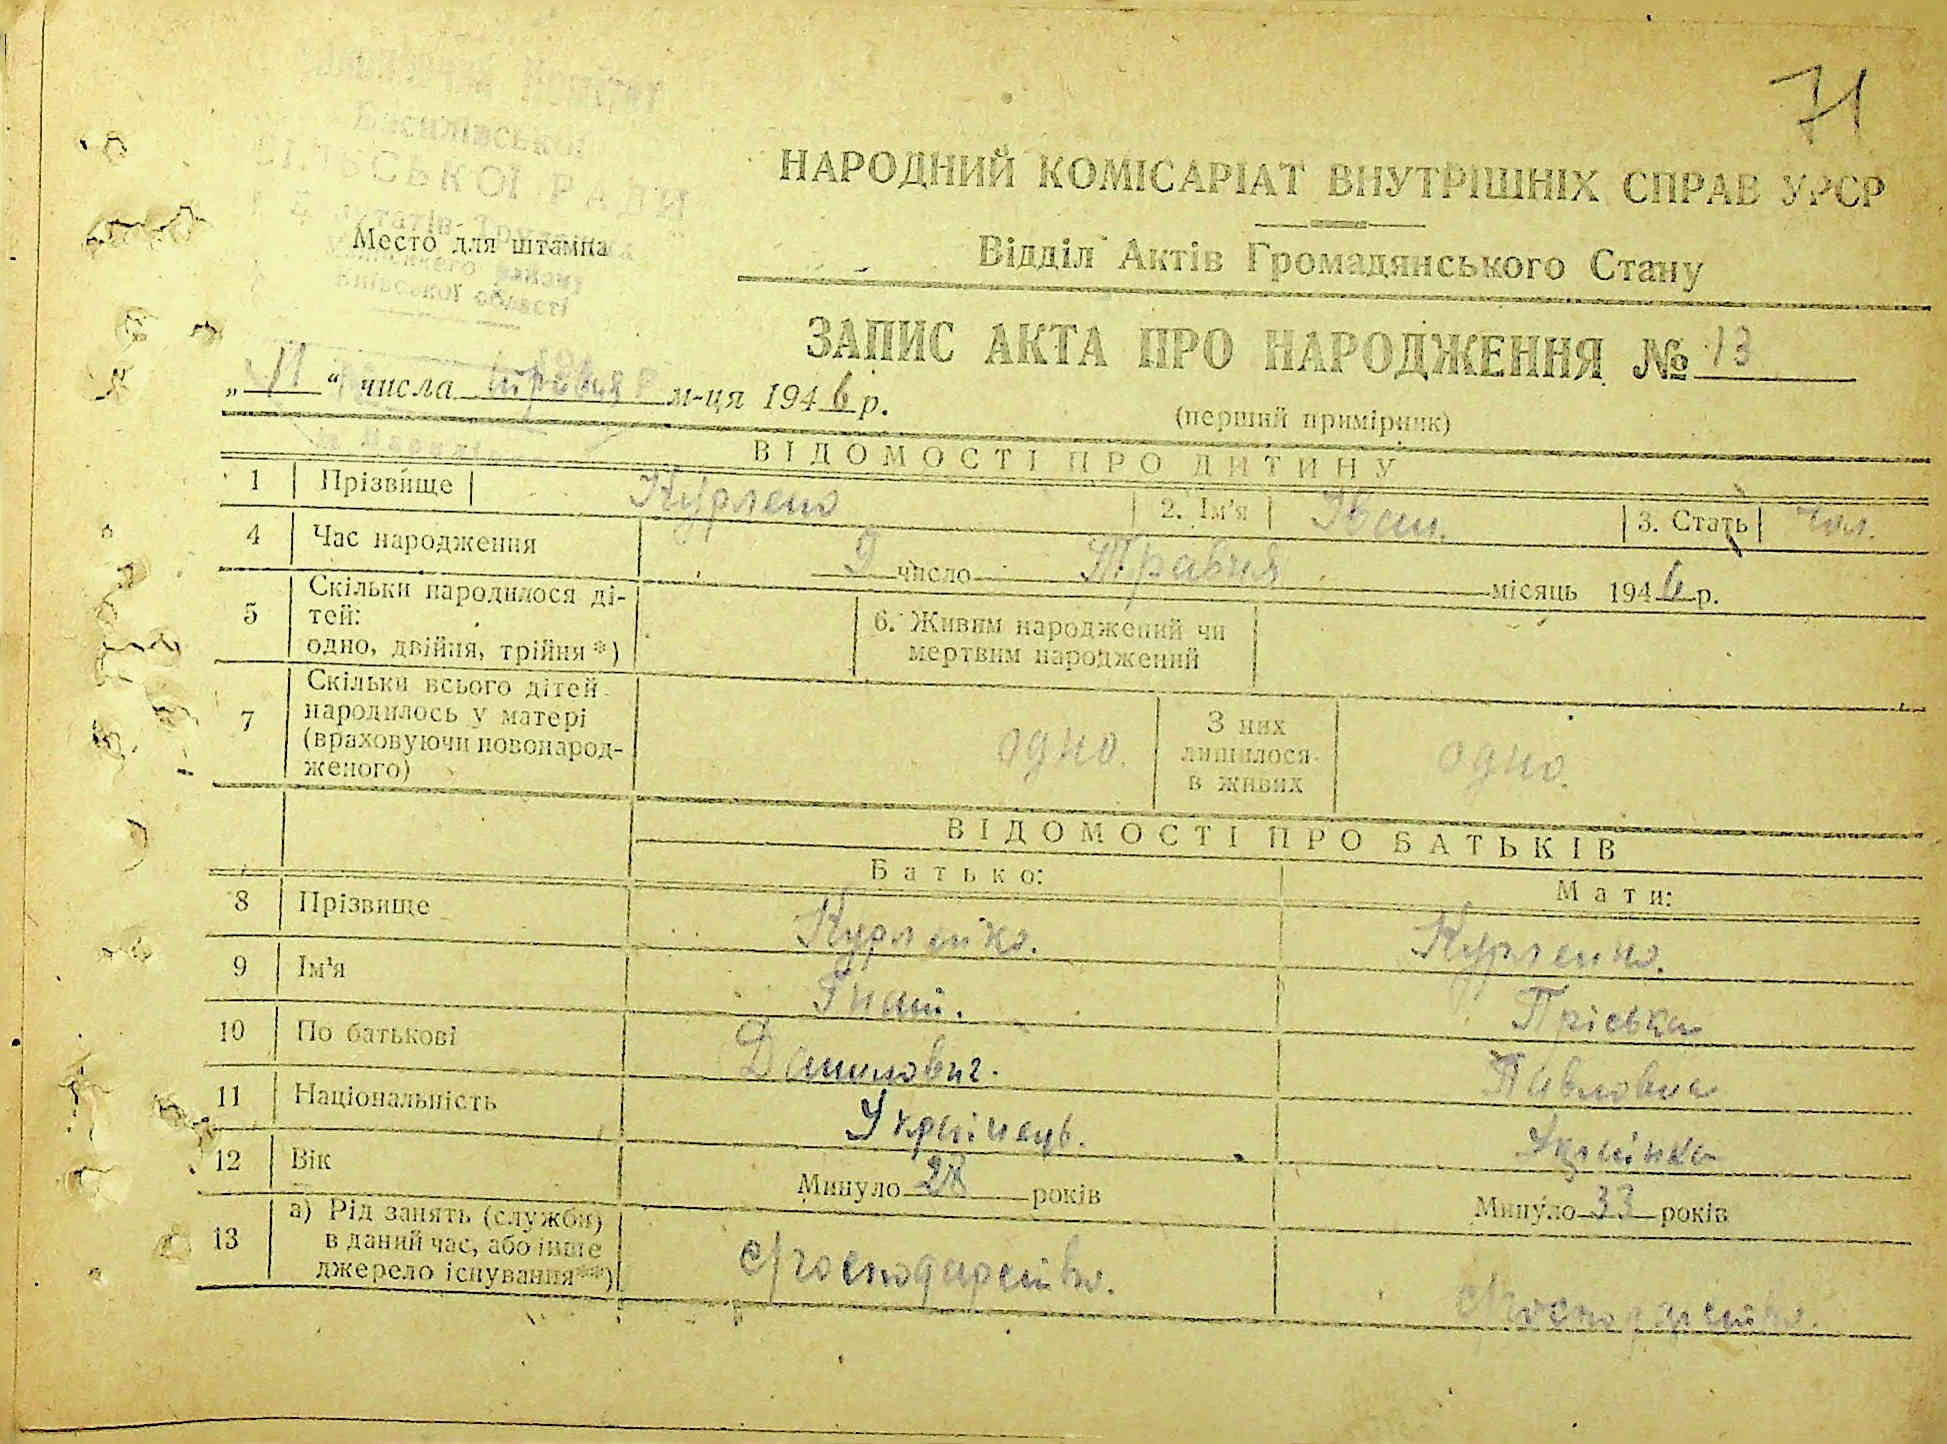 71
Василівської
СІЛЬСЬКОЇ РАДИ
НАРОДНИЙ КОМІСАРІАТ ВНУТРІШНІХ СПРАВ УРСР
Место для штампа
області
Відділ Актів Громадянського Стану
ЗАПИС АКТА ПРО НАРОДЖЕННЯ № 13
„ 11 “ числа травня м-ця 1946 р.
(перший примірник)
ВІДОМОСТІ ПРО ДИТИНУ
1 Прізвище Курленко 2. Ім'я Іван. 3. Стать чол.
4 Час народження 9 число Травня місяць 1946 р.
5 Скільки народилося ді-
тей:
одно, двійня, трійня*)
6. Живим народжений чи
мертвим народжений
7 Скільки всього дітей
народилось у матері
(враховуючи новонарод-
женого)
одно.
З них
лишилося
в живих
одно.
ВІДОМОСТІ ПРО БАТЬКІВ
Батько: Мати:
8 Прізвище Курленко. Курленко.
9 Ім'я Гнат. Пріська
10 По батькові Данилович. Павловна
11 Національність Українець. Українка
12 Вік Минуло 28 років Минуло 33 років
13 а) Рід занять (служби)
в даний час, або інше
джерело існування**)
с/господарство. с/господарство.